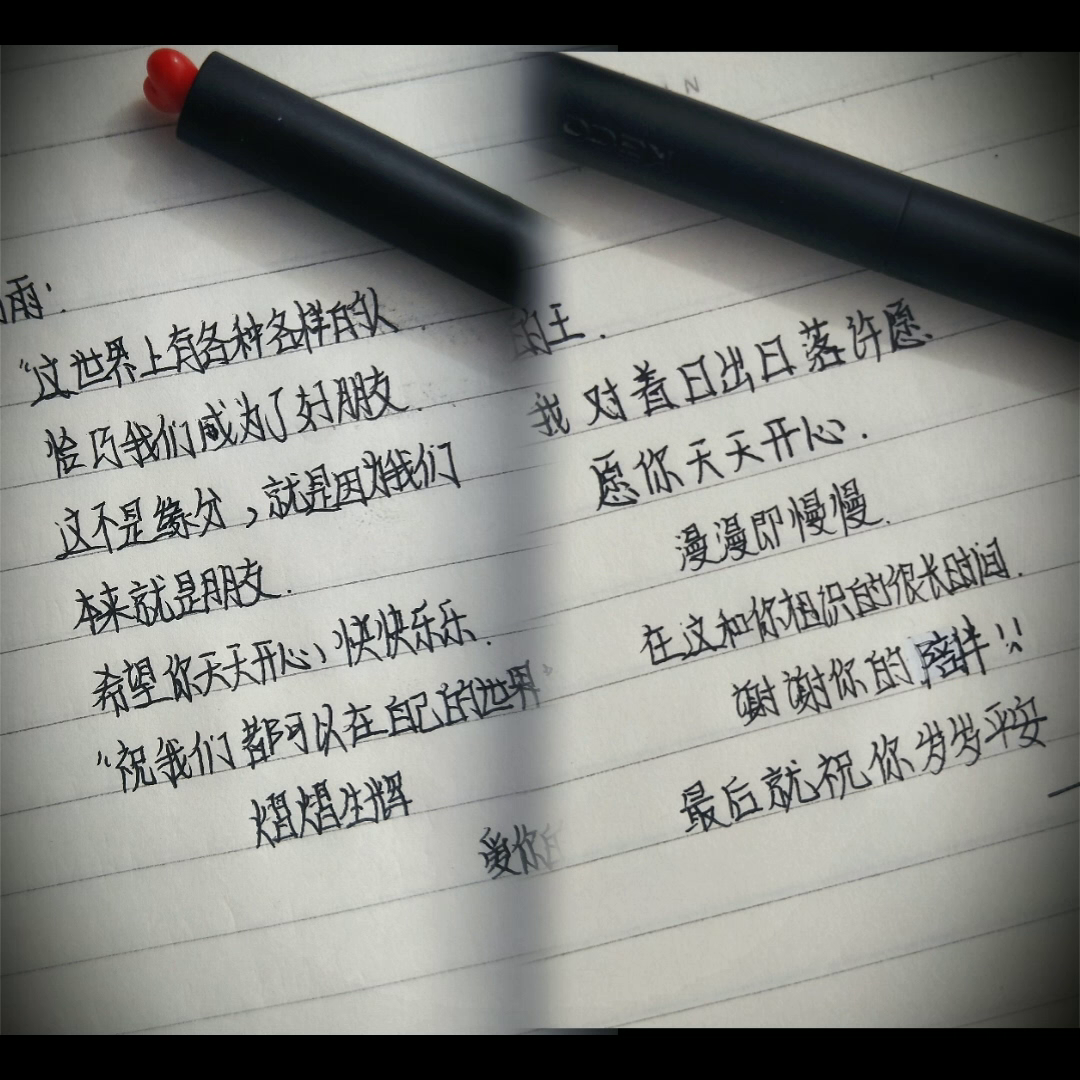 雨:
“这世界上有各种各样的人.
恰巧我们成为了好朋友.
这不是缘分，就是因为我们
本来就是朋友.
希望你天天开心，快快乐乐.
“祝我们都可以在自己的世界”
熠熠生辉
爱你的
的王.
我对着日出日落许愿.
愿你天天开心.
漫漫即慢慢.
在这和你相识的很长时间.
谢谢你的陪伴!!
最后就祝你岁岁平安